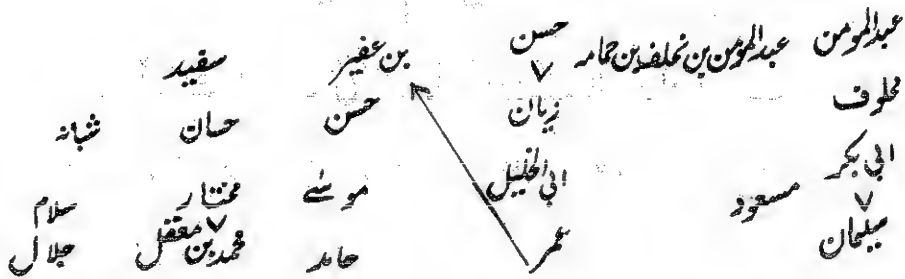 عبدالمومن عبدالمومن بن نحلف بن حمامه حسن بن عفیر سقید
مخلوف زیان حسن حسان شبانه
ابی بکر مسعود ابی الخلیل موسٰے مختار سلام
سلیمان عمر حامد محمد بن معقل جلال